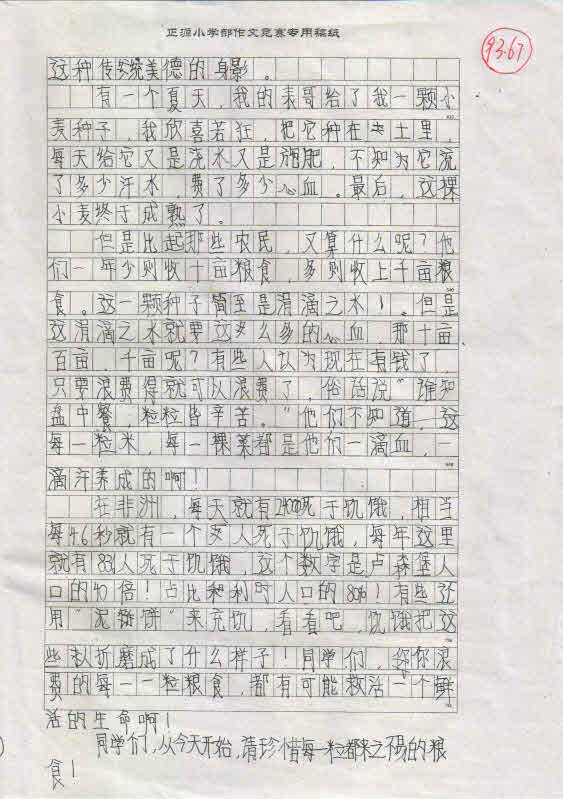 正源小学部作文竞赛专用稿纸
93.67
这种传统美德的身影。
有一个夏天，我的表哥给了我一颗小
麦种子，我欣喜若狂，把它种在土里，
每天给它又是浇水又是施肥，不知为它流
了多少汗水，费了多少心血。最后，这棵
小麦终于成熟了。
但是比起那些农民，又算什么呢？他
们一年少则收十亩粮食，多则收上千亩粮
食。这一颗种子简至是涓滴之水！但是
这涓滴之水就要这么多的心血，那十亩
百亩，千亩呢？有些人认为现在有钱了，
只要浪费得就可以浪费了，俗话说“谁知
盘中餐，粒粒皆辛苦。”他们不知道，这
每一粒米，每一棵菜都是他们一滴血，一
滴汗养成的啊！
在非洲，每天就有24000死于饥饿，相当
每4.6秒就有一个人死于饥饿，每年这里
就有人死于饥饿，这个数字是卢森堡人
口的40倍！占比利时人口的80%！有些还
用“泥饼”来充饥，看看吧，饥饿把这
些人折磨成了什么样子！同学们，你浪
费的每一一粒粮食，都有可能救活一个鲜
活的生命啊！
同学们，从今天开始，请珍惜每一粒都来之不易的粮
食！